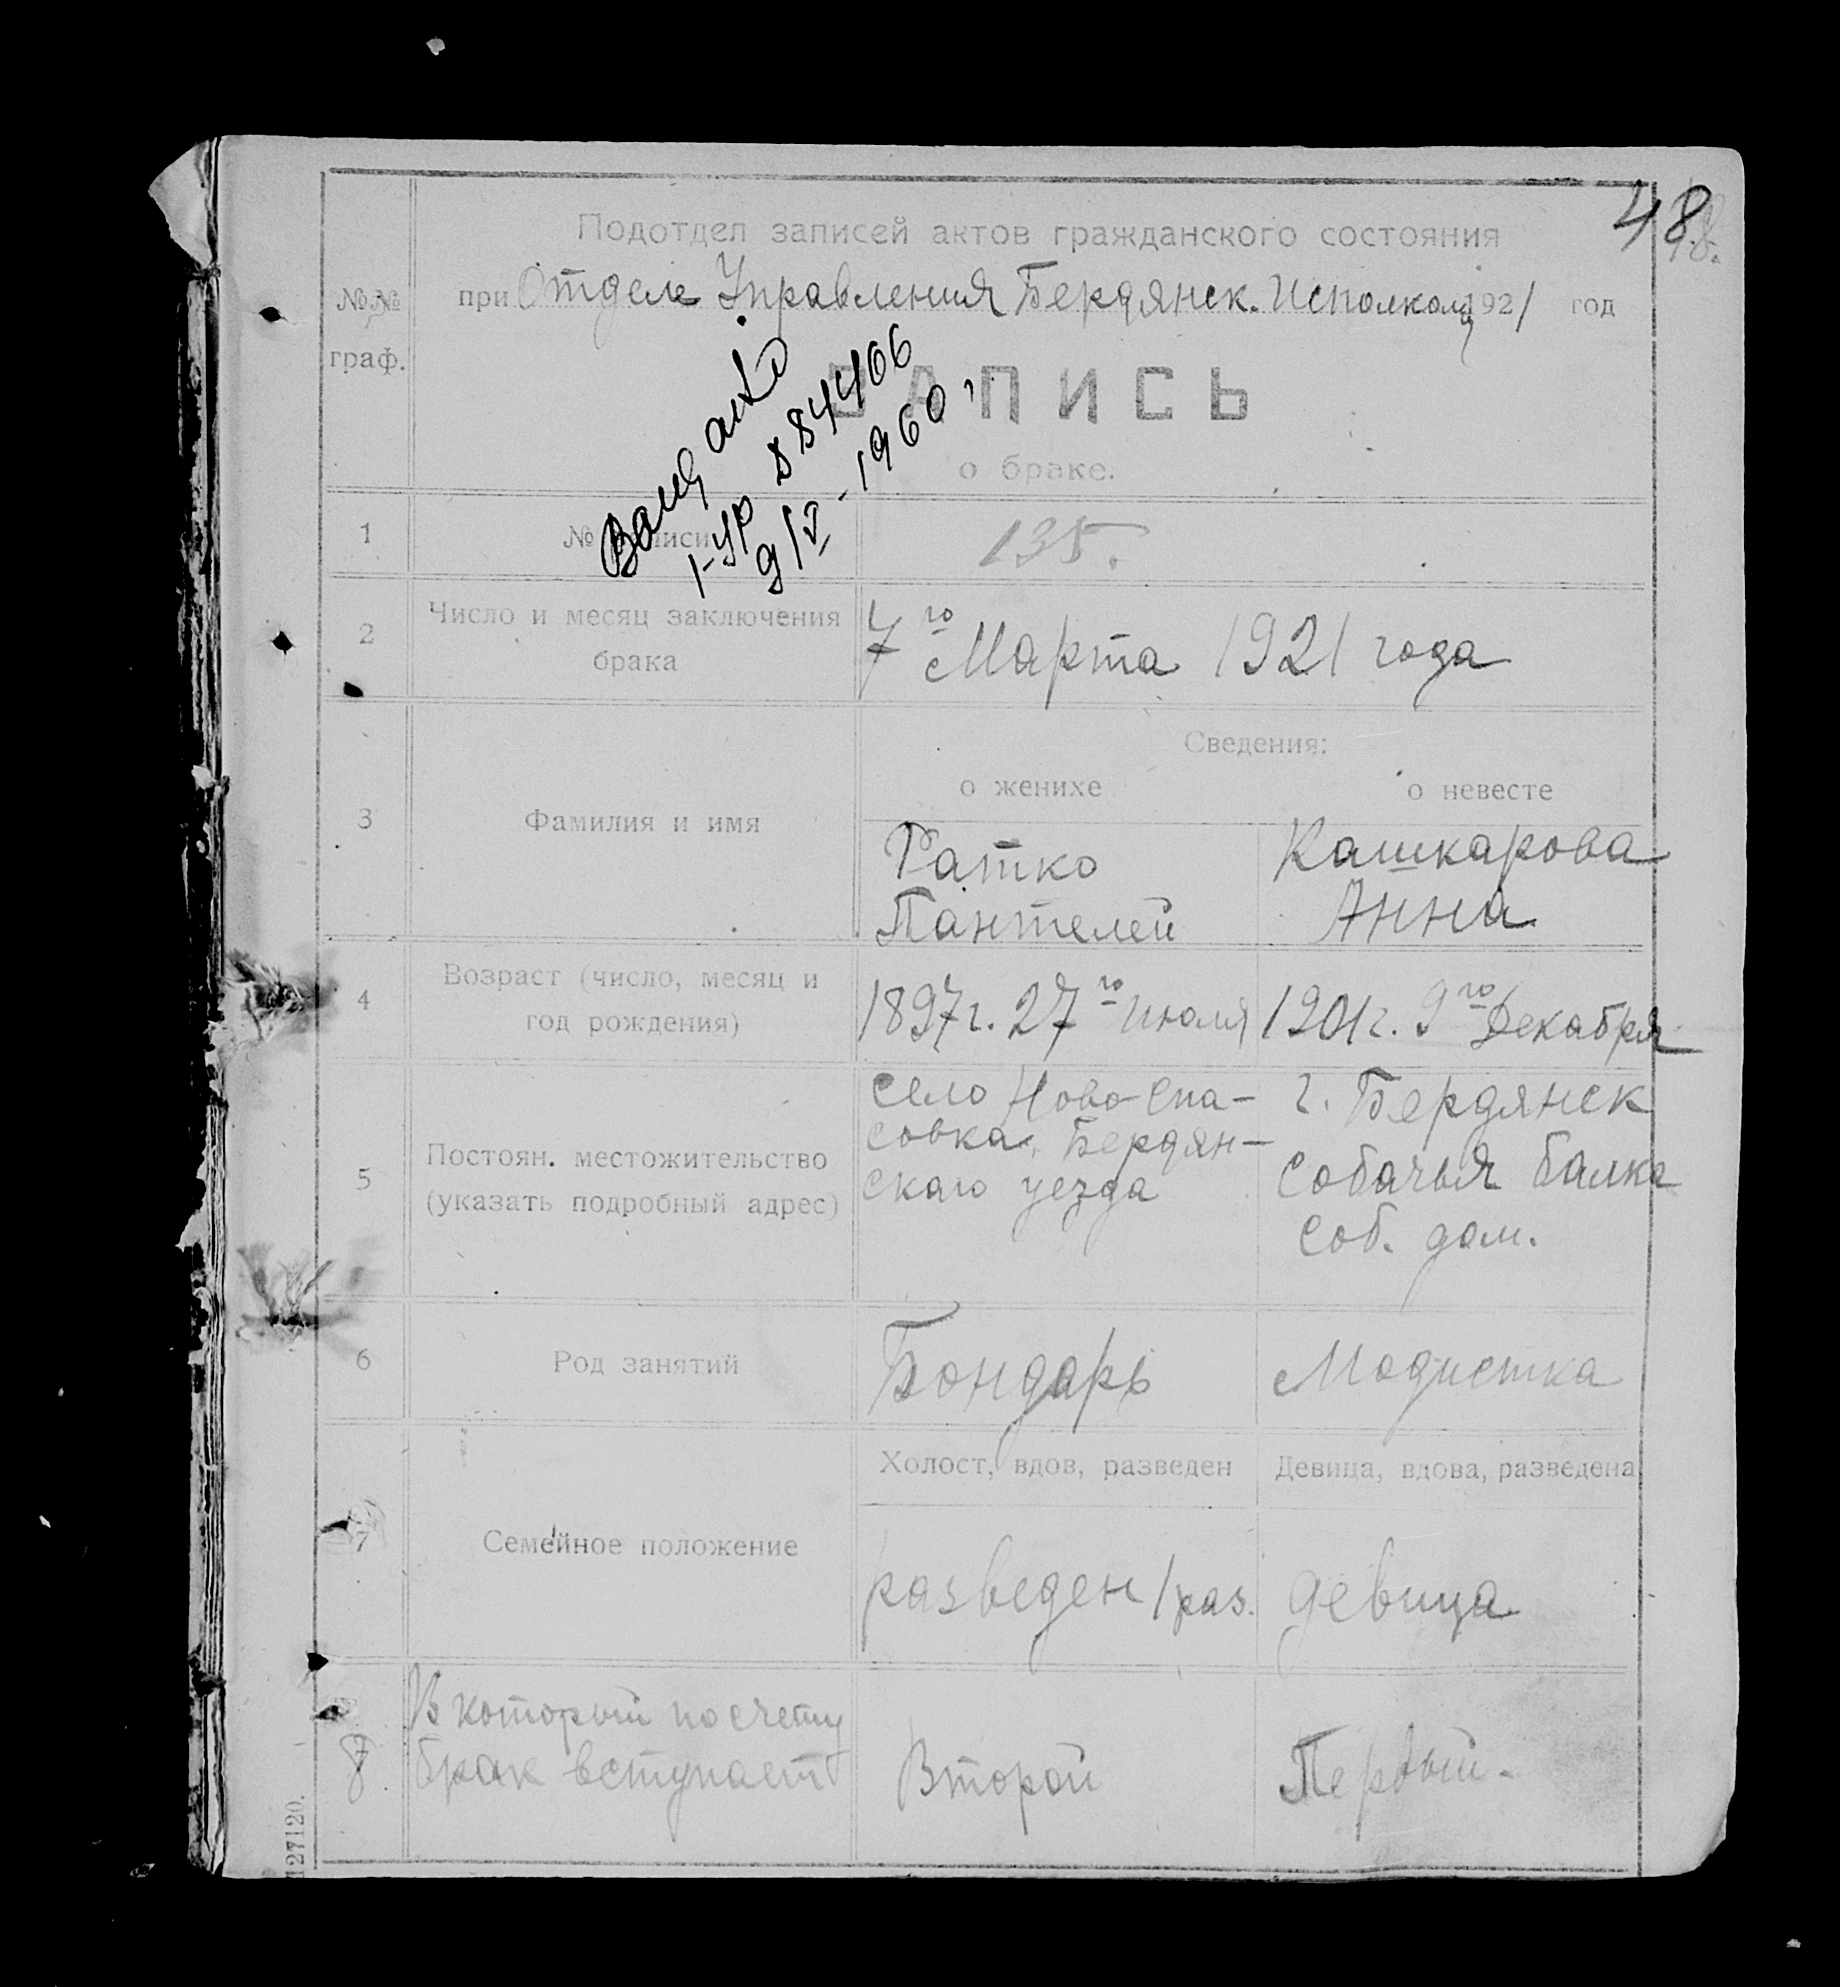 48.
Подотдел записей актов гражданского состояния
№№ граф.
при Отделе Управления Бердянск. Исполкома 1921 год
ЗАПИСЬ
о браке.
884406
9/V - 1960
1 № записи 135.
2 Число и месяц заключения брака 7го Марта 1921 года
Сведения:
о женихе о невесте
3 Фамилия и имя
Ратко Кашкарова
Пантелей Анна
4 Возраст (число, месяц и
год рождения)
1897г. 27го Июля 1901г. 9го Декабря
5 Постоян. местожительство
(указать подробный адрес)
село Ново-Спа-
совка, Бердян-
скаго уезда
г. Бердянск
Собачья балка
соб. дом.
6 Род занятий Бондарь Модистка
Холост, вдов, разведен Девица, вдова, разведена
7 Семейное положение
разведен /раз. девица
8 В который по счету
брак вступает Второй Первый-
127120.